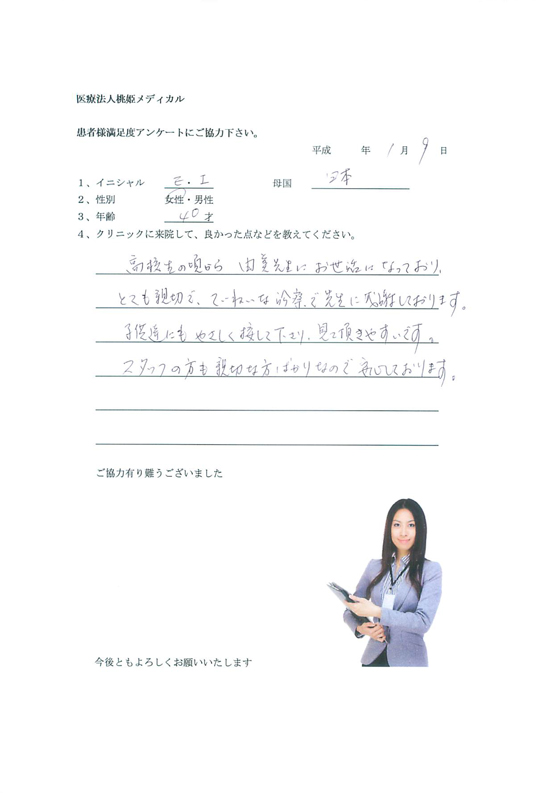 医療法人桃姫メディカル
患者様満足度アンケートにご協力下さい。
平成 年 1月 9日
1、イニシャル E・I 母国 日本
2、性別 女性・男性
3、年齢 40才
4、クリニックに来院して、良かった点などを教えてください。
高校生の頃から 由美先生に お世話になっており、
とても親切で、ていねいな診察で先生に感謝しております。
子供達にも やさしく接して下さり、見て頂きやすいです。
スタッフの方も親切な方ばかりなので 安心しております。
ご協力有り難うございました
今後ともよろしくお願いいたします